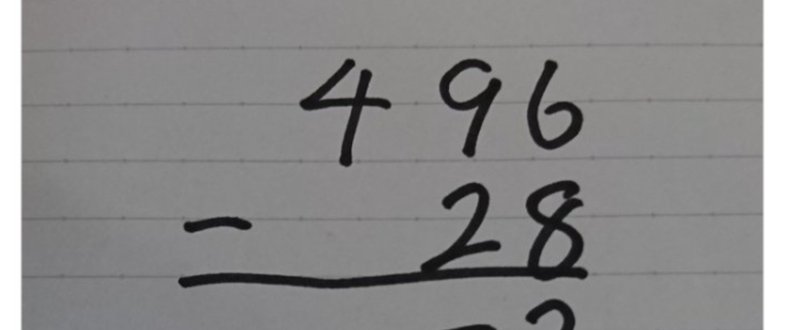 496
- 28